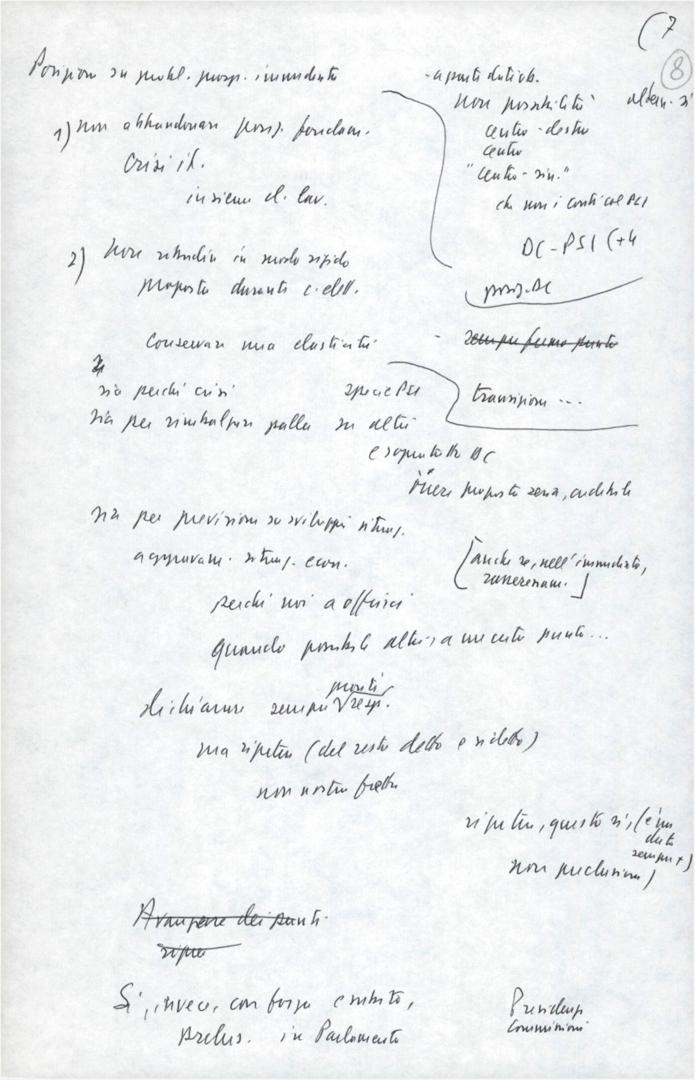 (7
8
Posizioni su probl. prosp. immediate
1) non abbandonare posiz. fondam.
crisi it.
insieme cl. lav.
- a parte dutiob.
non possibilità altern. si
centro-destro
centro
"centro-sin."
che non i conti col PCI
DC-PSI (+4
posiz. DC
2) non ribadire in modo rigido
proposta durante c. elett.
conservare una elasticità
- sempre fermo punto
sia perché crisi specie PSI
transizione ...
sia per rimbalzare palla su altri
e soprattutto DC
proposta seria, credibile
sia per previsione su sviluppi situaz.
aggravam. situaz. econ.
[anche se, nell'immediato,
rasserenam.]
perché noi a offrirci
quando possibile altri, a un certo punto...
dichiarare sempre pronti resp.
ma ripetere (del resto detto e ridetto)
non nostra fretta
ripetere, questo sì, (è un
dato
sempre +)
non preclusioni)
Avanzare dei punti
Sì, invece, con forza e subito,
in Parlamento
Presidenze
Commissioni